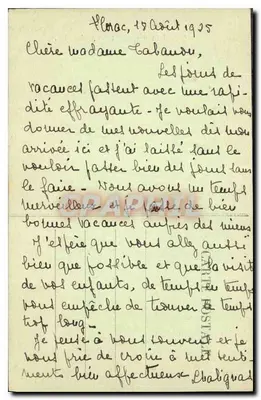 15 Août 1925
Chère madame Cabanon,
Les jours de
vacances passent avec une rapi-
dité effrayante - Je voulais vous
donner de mes nouvelles dès mon
arrivée ici et j'ai laissé sans le
vouloir passer bien des jours sans
le faire - Nous avons un temps
merveilleux et je passe de bien
bonnes vacances auprès des miens
J'espère que vous allez aussi
bien que possible et que la visite
de vos enfants, de temps en temps
vous empêche de trouver le temps
trop long -
Je pense à vous souvent et je
vous prie de croire à mes senti-
ments bien affectueux
CARTE POSTALE